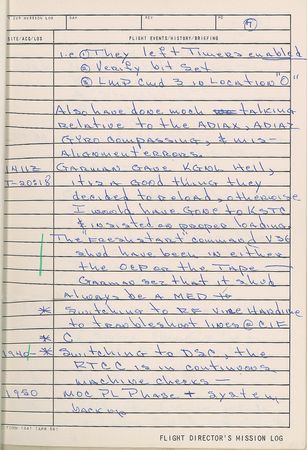 DAY
REV
PG
7
SITE/ACQ/LOS
FLIGHT EVENTS/HISTORY/BRIEFING
i.e ① They left Timers enabled
② Verify bit set
③ LMP Cmd 3 in Location "0"
Also have done much talking
relative to the ADIAX, ADIAZ
GYRO COMPASSING, & mis-
Alignment errors.
1411Z
GARMAN GAVE KGNL Hell,
T-20:18
it is a GOOD thing they
decided to reload, otherwise
I would have GONE to KSTC
& insisted on proper loading.
The "FRESHSTART" command V36
shud have been in either
the OCP or the TAPE —
GARMAN sez that it shud
Always be A MED
* Switching to RF via Hardline
to troubleshoot lines @ CIF
* C
1940
* Switching to DSC, the
RTCC is in continuous
machine checks —
1950
MOC PL Phase + System,
backup
FLIGHT DIRECTOR'S MISSION LOG